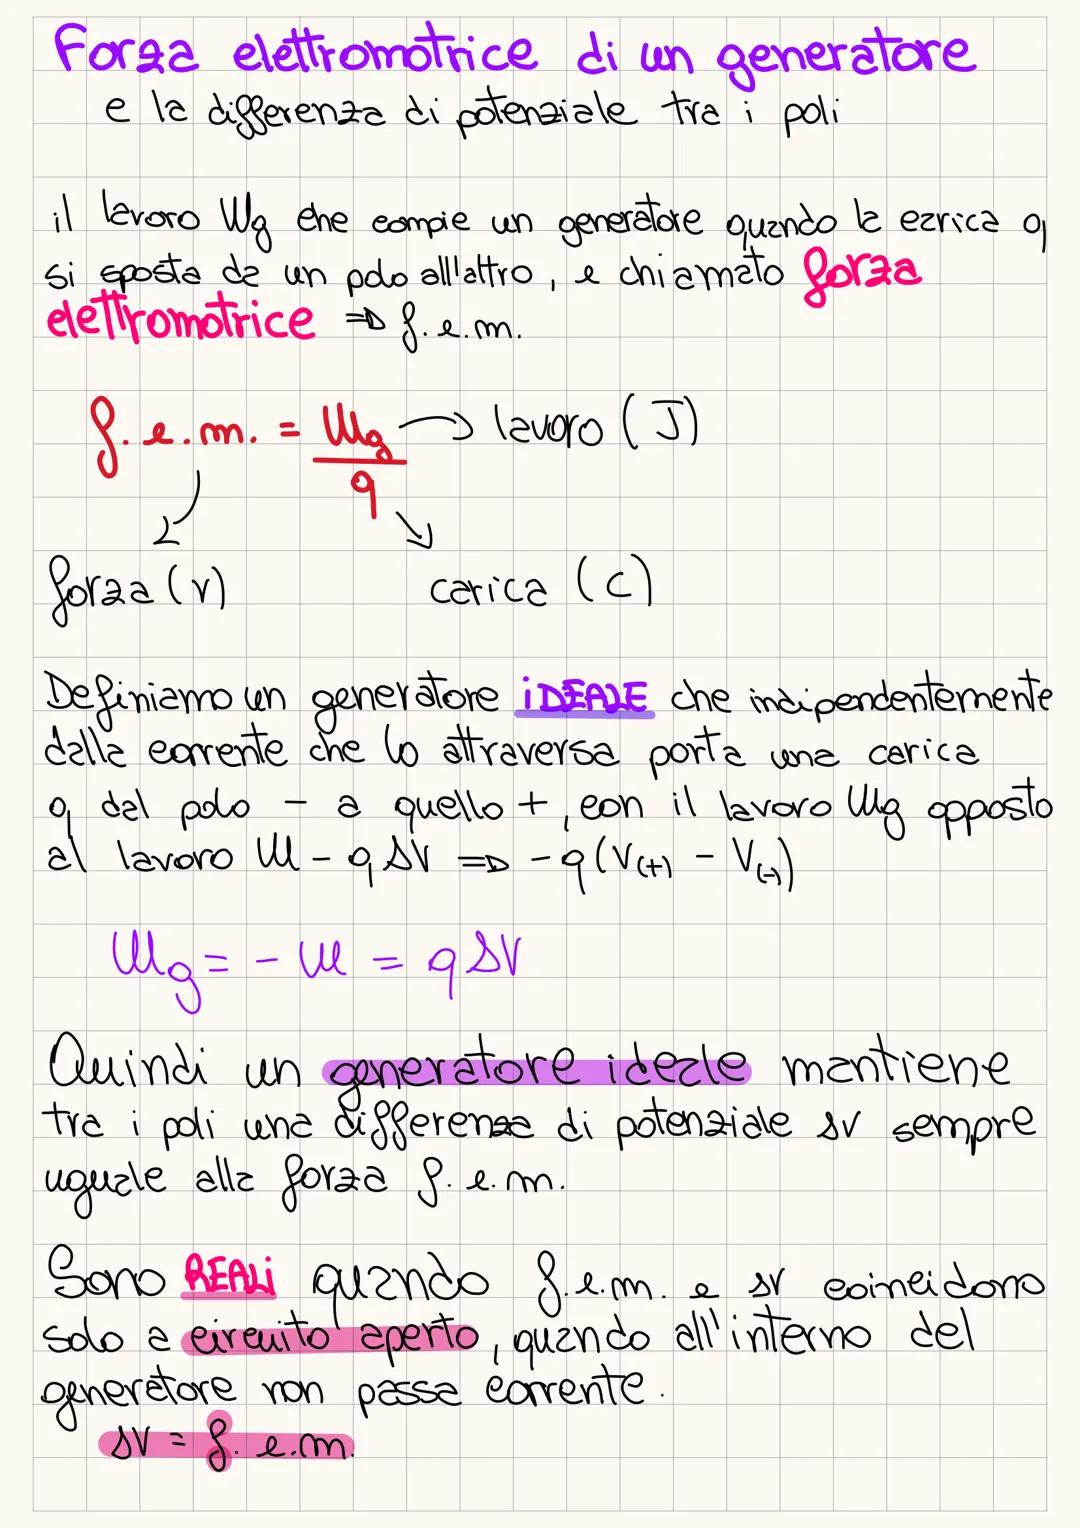 Forza elettromotrice di un generatore
e la differenza di potenziale tra i poli
il lavoro Wg che compie un generatore quando la carica q
si sposta da un polo all'altro, e chiamato forza
elettromotrice => f.e.m.
f.e.m. = Wg/q → lavoro (J)
forza (V) carica (C)
Definiamo un generatore iDEALE che indipendentemente
dalla corrente che lo attraversa porta una carica
q dal polo - a quello +, con il lavoro Wg opposto
al lavoro W - qΔV => -q(V(+) - V(-))
Wg = - W = qΔV
Quindi un generatore ideale mantiene
tra i poli una differenza di potenziale ΔV sempre
uguale alla forza f.e.m.
Sono REALi quando f.e.m. e ΔV coincidono
solo a circuito aperto, quando all'interno del
generatore non passa corrente.
ΔV = f.e.m.